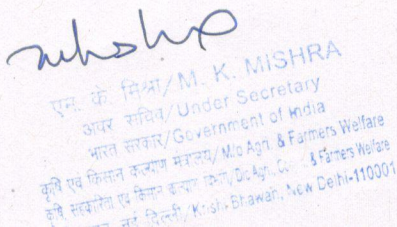 एन. के. मिश्रा/M. K. MISHRA
अवर सचिव/Under Secretary
भारत सरकार/Government of India
कृषि एवं किसान कल्याण मंत्रालय/M/o Agri. & Farmers Welfare
कृषि, सहकारिता एवं किसान कल्याण विभाग/D/o Agri., & Farmers Welfare
नई दिल्ली/Krishi Bhawan, New Delhi-110001